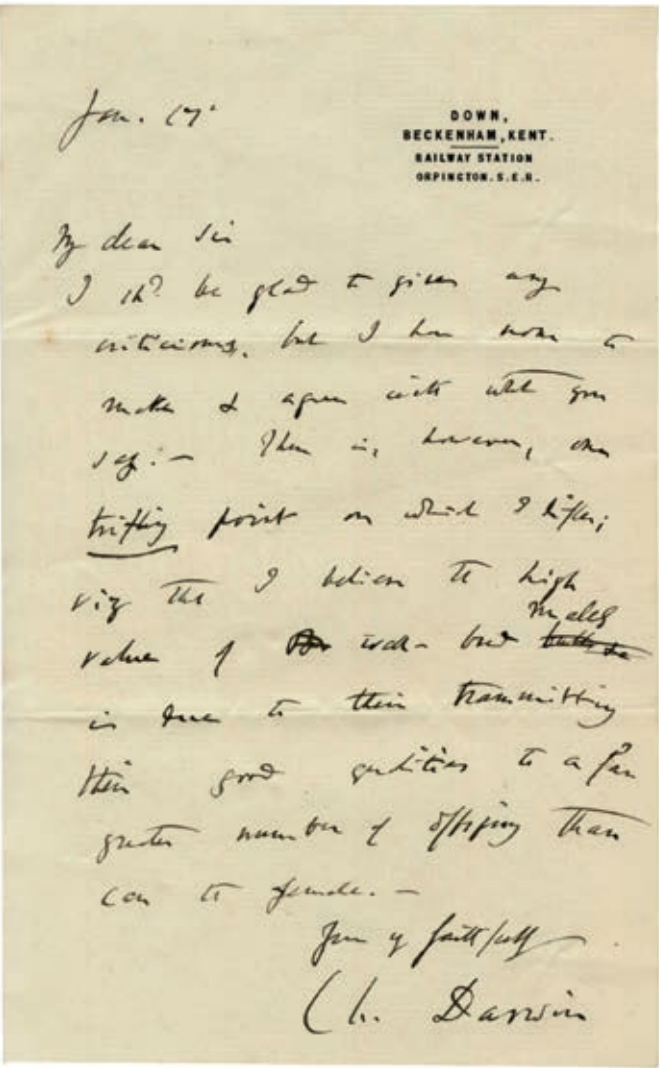 Jan. 17.
DOWN,
BECKENHAM, KENT.
RAILWAY STATION
ORPINGTON. S.E.R.
My dear Sir
I shd. be glad to give any
criticisms, but I have none to
make & agree with what you
say.— There is, however, one
trifling point on which I differ;
viz that I believe the high
males
value of well-bred
is due to their transmitting
their good qualities to a far
greater number of offspring than
can the female.—
Yours faithfully
Ch. Darwin